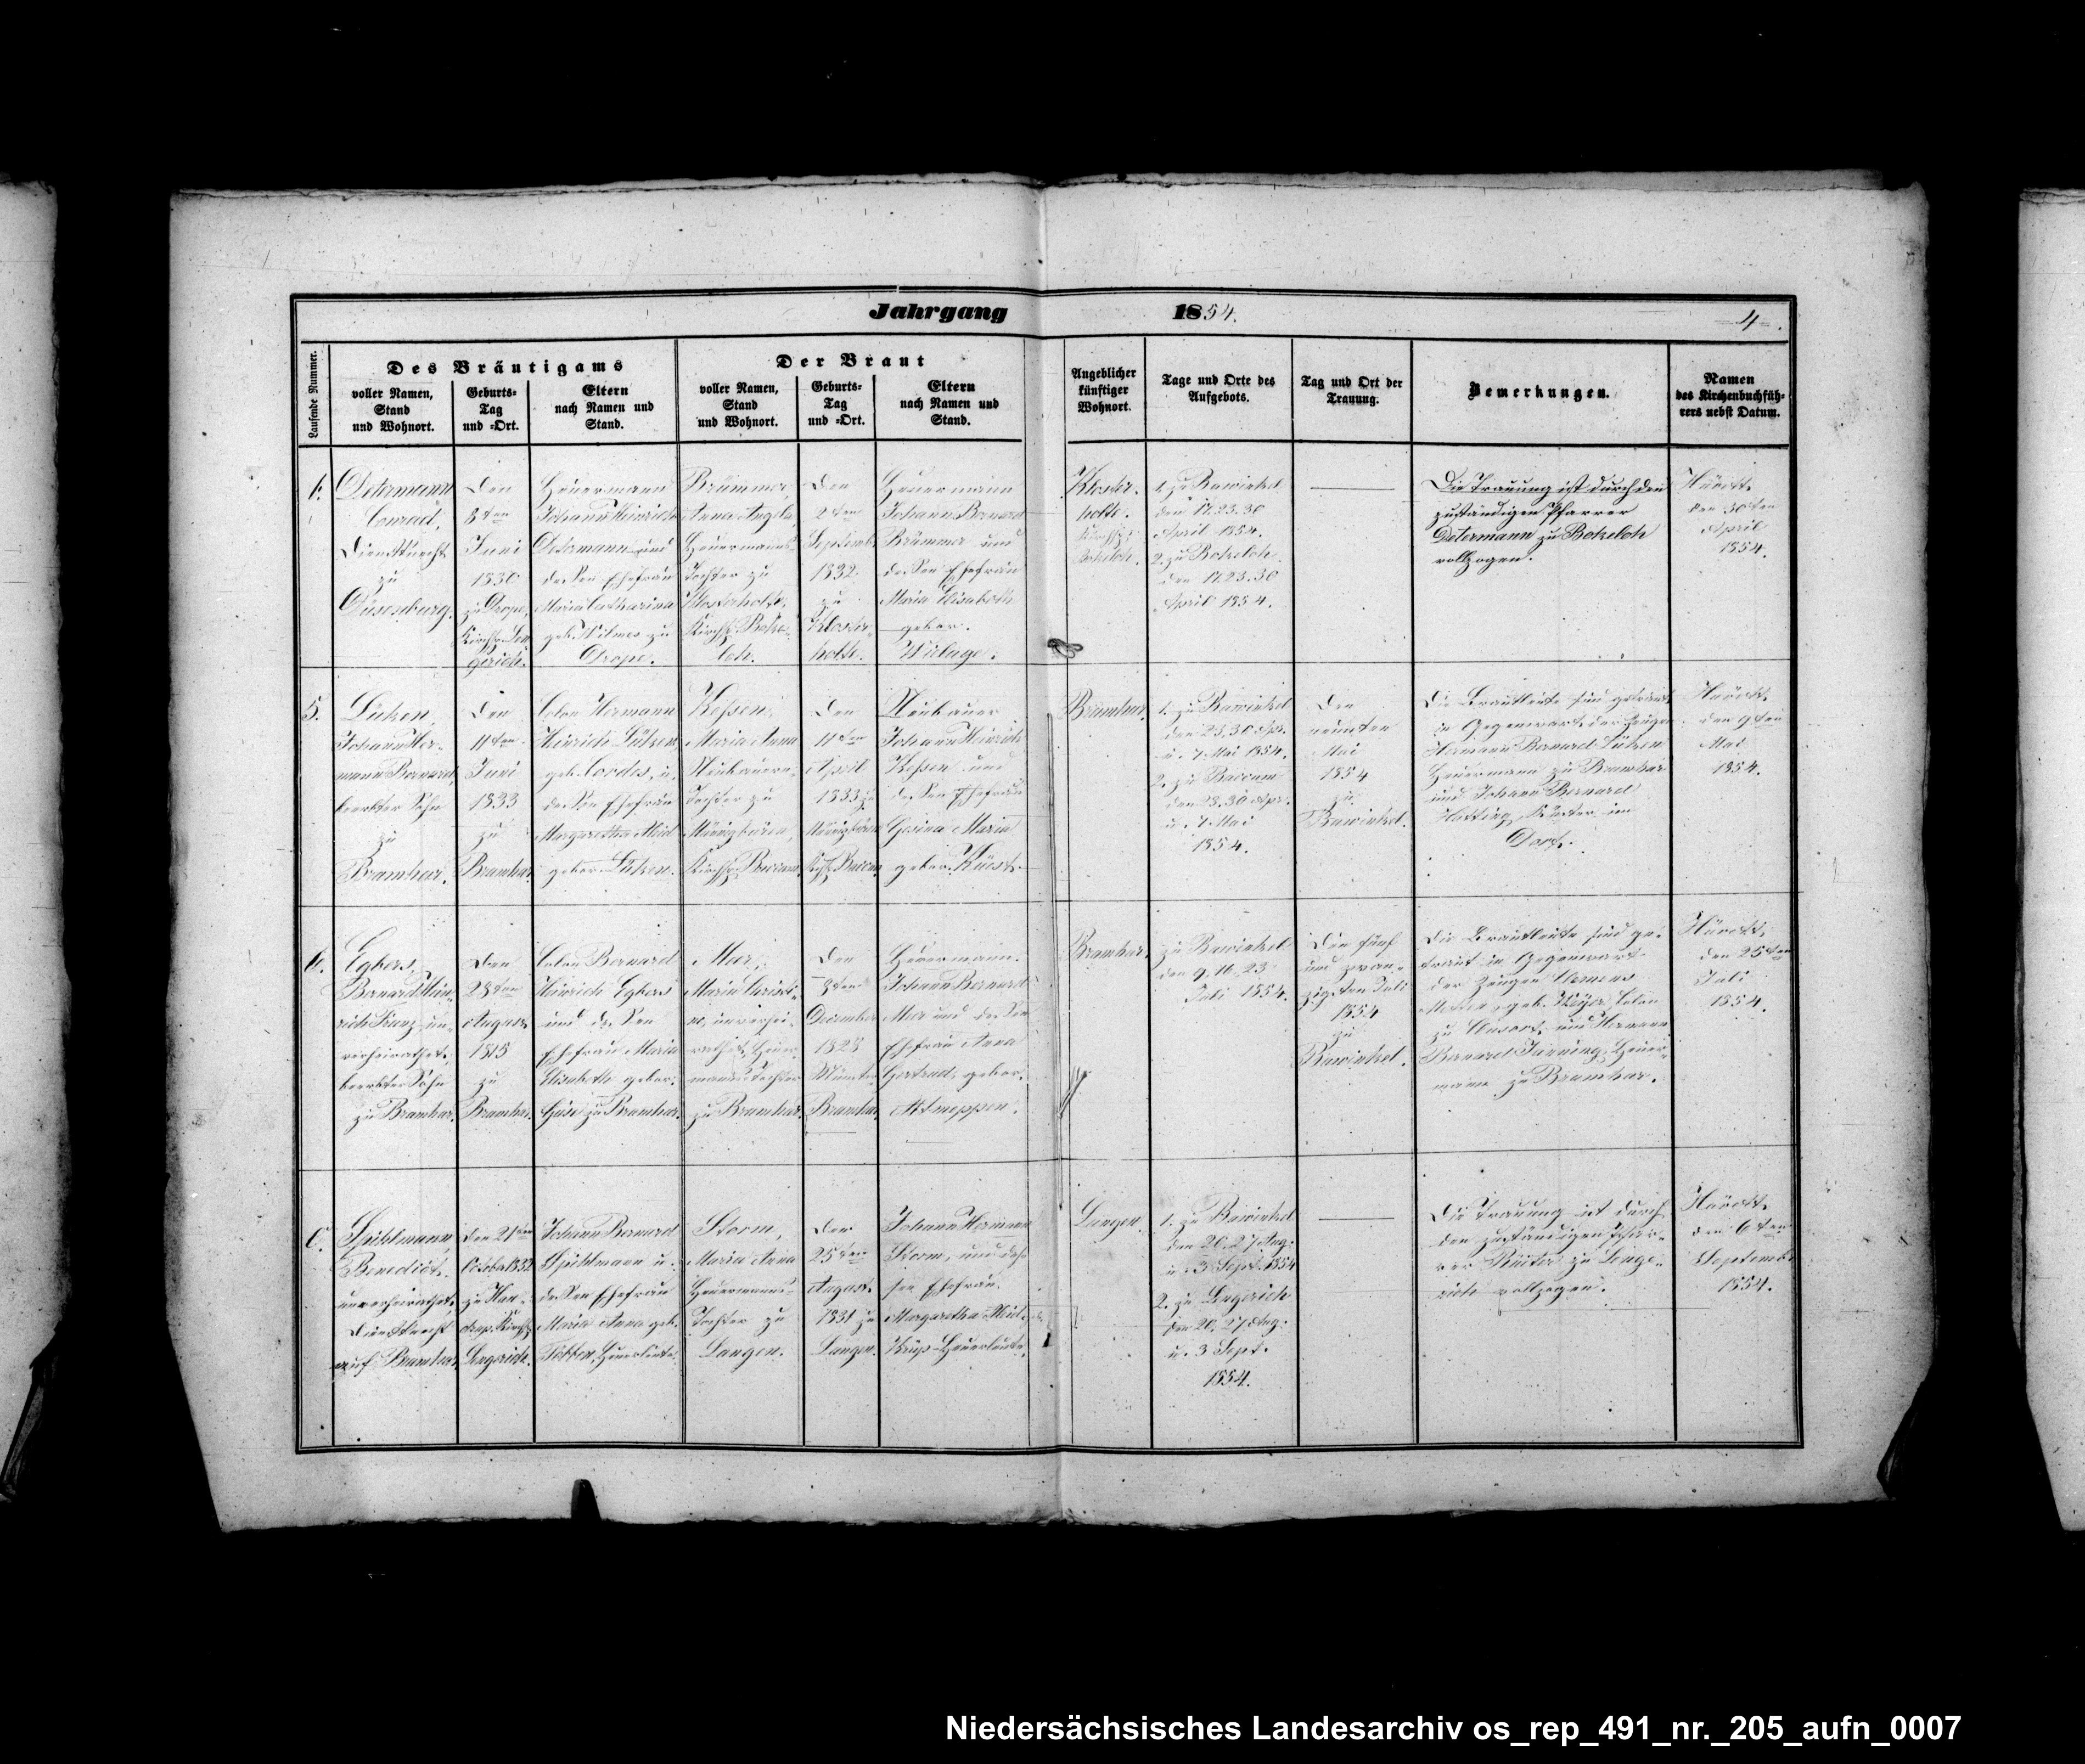 Jahrgang 1854.
4.
Laufende Nummer.
Des Bräutigams
voller Namen,
Stand
und Wohnort.
Geburts-
Tag
und =Ort.
Eltern
nach Namen und
Stand.
Der Braut
voller Namen,
Stand
und Wohnort.
Geburts=
Tag
und =Ort.
Eltern
nach Namen und
Stand.
Angeblicher
künftiger
Wohnort.
Tage und Orte des
Aufgebots.
Tag und Ort der
Trauung.
Bemerkungen.
Namen
des Kirchenbuchfüh-
rers nebst Datum.
Determann
Conrad,
Dienstknecht
zu
Duisenburg.
Den
8ten
Juni
1830
zu Drope,
Kirchsp. Len-
gerich.
Heuermann
Johann Heinrich
Determann und
dessen Ehefrau
Maria Catharina
geb. Wilmes zu
Drope.
Brümmer,
Anna Angela,
Heuermanns
Tochter zu
Klosterholte,
Kirchsp. Boke-
loh.
Den
2ten
Septemb.
1832
zu
Kloster-
holte.
Heuermann
Johann Bernard
Brümmer und
dessen Ehefrau
Maria Elisabeth
gebor.
Kloster-
holte.
Kirchsp.
Bokeloh.
1. zu Bawinkel
den 17. 23. 30
April 1854.
2. zu Bokeloh
den 17. 23. 30
April 1854.
Die Trauung ist durch den
zuständigen Pfarrer
Determann zu Bokeloh
vollzogen.
den 30ten
April
1854.
5.
Lüken,
Johann Her-
mann Bernard,
beerbter Sohn
zu
Bramhar.
Den
11ten
Juni
1833
zu
Bramhar.
Colon Hermann
Heinrich Lüken
geb. Cordes, u.
dessen Ehefrau
Margaretha Aleid
gebor. Lüken.
Kessen,
Maria Anna
Neubauern-
Tochter zu
Münnigbüren,
Kirchsp. Baccum.
Den
11ten
April
1833 zu
Münnigbüren
Kchsp. Baccum
Neubauer
Johann Heinrich
Kessen und
dessen Ehefrau
Gesina Maria
gebor.
Bramhar.
1. zu Bawinkel
den 23. 30 Apr.
u. 7 Mai 1854.
2. zu Baccum
den 23. 30 Apr.
u. 7 Mai
1854.
Den
neunten
Mai
1854
zu
Bawinkel.
Die Brautleute sind getraut
in Gegenwart der Zeugen
Hermann Bernard Lüken
Heuermann zu Bramhar
und Johann Bernard
Hatting, Küster im
Dorf.
den 9ten
Mai
1854.
Egbers,
Bernard Hein-
rich Franz, un-
verheirathet,
beerbter Sohn
zu Bramhar.
Den
28ten
August
1815
zu
Bramhar.
Colon Bernard
Heinrich Egbers
und dessen
Ehefrau Maria
Elisabeth gebor.
zu Bramhar.
Maria Christi-
ne, unverhei-
rathet, Heuer-
manns Tochter
zu Bramhar.
Den
8ten
December
1828
Bramhar.
Heuermann
Johann Bernard
und dessen
Ehefrau Anna
Gertrud, gebor.
Altmeppen.
Bramhar.
zu Bawinkel
den 9. 16. 23
Juli 1854.
Den fünf
und zwan-
zigsten Juli
1854
zu
Bawinkel.
Die Brautleute sind ge-
traut in Gegenwart
der Zeugen
Colon
und Hermann
Bernard Janning, Heuer-
mann zu Bramhar.
den 25ten
Juli
1854.
Benedict,
unverheirathet,
Dienstknecht
auf Bramhar.
Den 21ten
October 1832
Kirchsp.
Lengerich.
Johann Bernard
u.
dessen Ehefrau
Maria Anna geb.
Többen, Heuerleute.
Storm,
Maria Anna
Heuermanns-
Tochter zu
Langen.
Den
25ten
August
1831 zu
Langen.
Johann Hermann
Storm, und des-
sen Ehefrau
Margaretha Aleid
Heuerleute.
Langen.
1. zu Bawinkel
den 20. 27 Aug.
u. 3 Sept. 1854
2. zu Lengerich
den 20. 27 Aug.
u. 3 Sept.
1854.
Die Trauung ist durch
den zuständigen Pfar-
rer zu Lenge-
rich vollzogen.
den 6ten
Septemb.
1854.
Niedersächsisches Landesarchiv os_rep_491_nr._205_aufn_0007